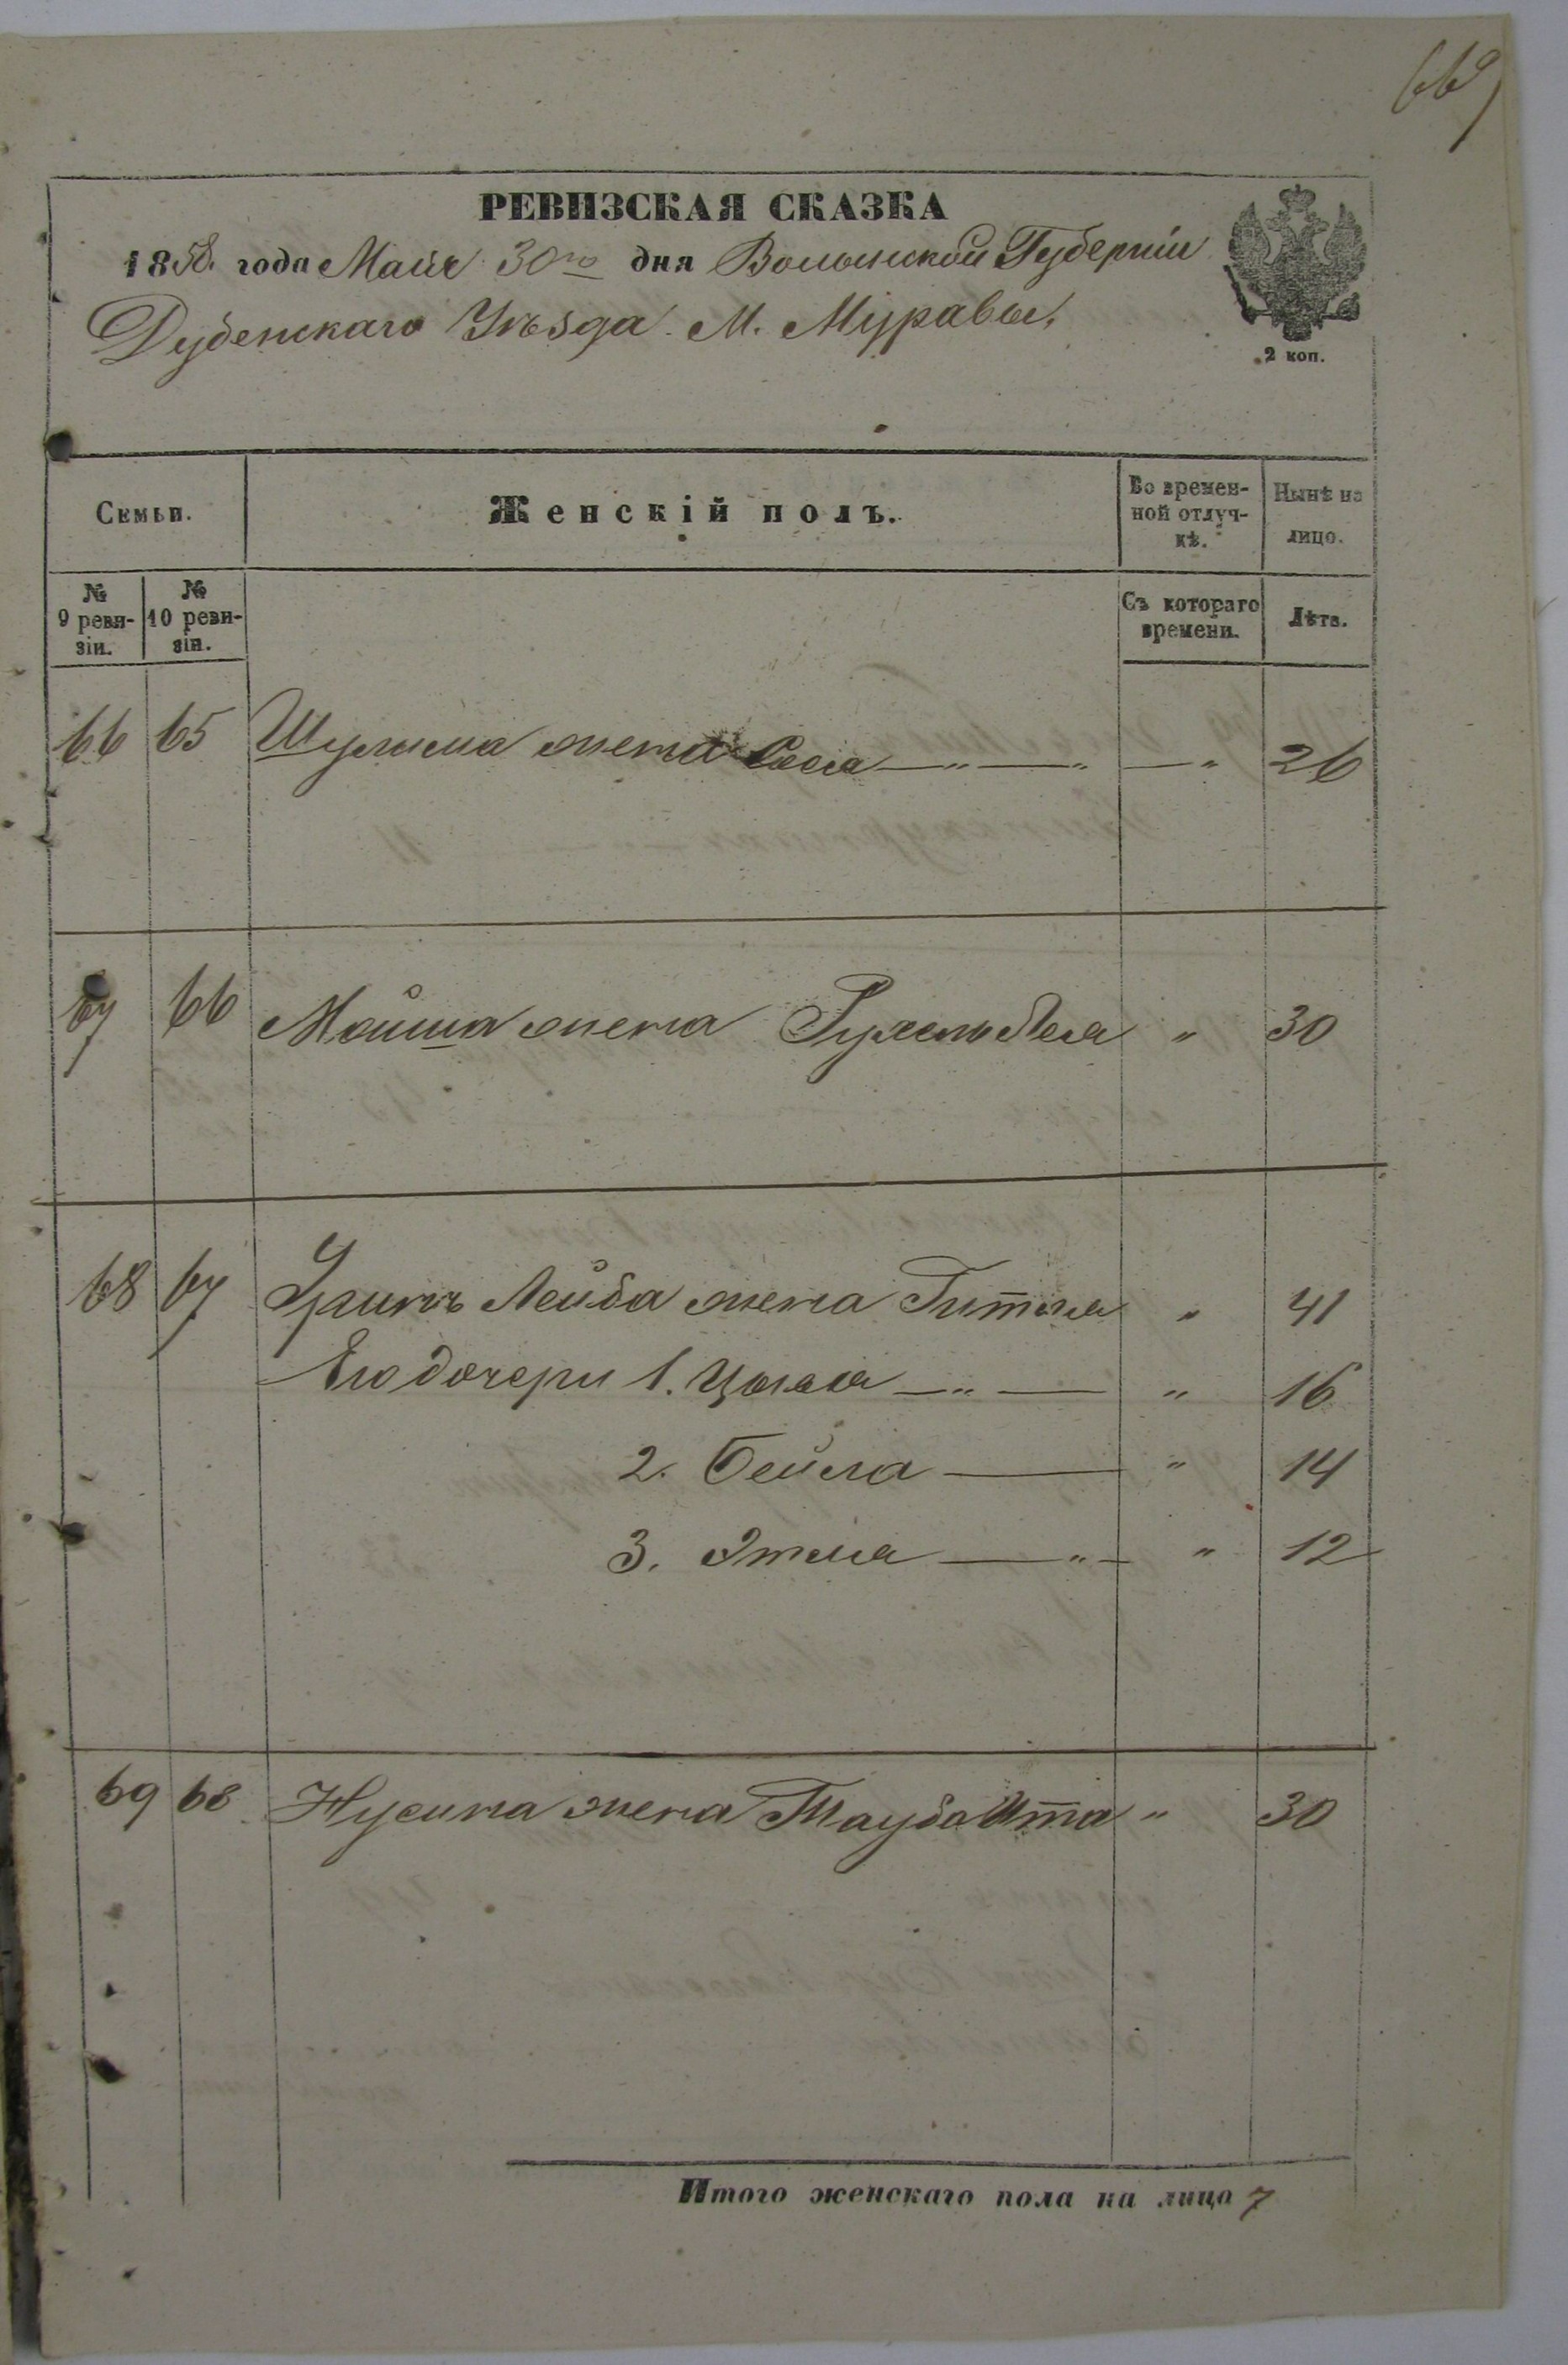 669
РЕВИЗСКАЯ СКАЗКА
1858. года Маия 30го дня Волынской Губерніи
Дубенскаго Уѣзда М. Муравы,
2 коп.
Семьи.
Женскій полъ.
Во времен-
ной отлуч-
кѣ.
Нынѣ на
лицо.
№
9 реви-
зіи.
№
10 реви-
зіи.
Съ котораго
времени.
Лѣта.
66 65 Шулима жена Сося — " — " — " 26
67 66 Мойша жена Рухель Лея " 30
68 67 Лейба жена Гитля " 41
Его дочери 1. Цыля — " — " 16
2. Бейла — " 14
3. Этля — " — " 12
69 68 Нусина жена Тауба Ита " 30
Итого женскаго пола на лицо 7